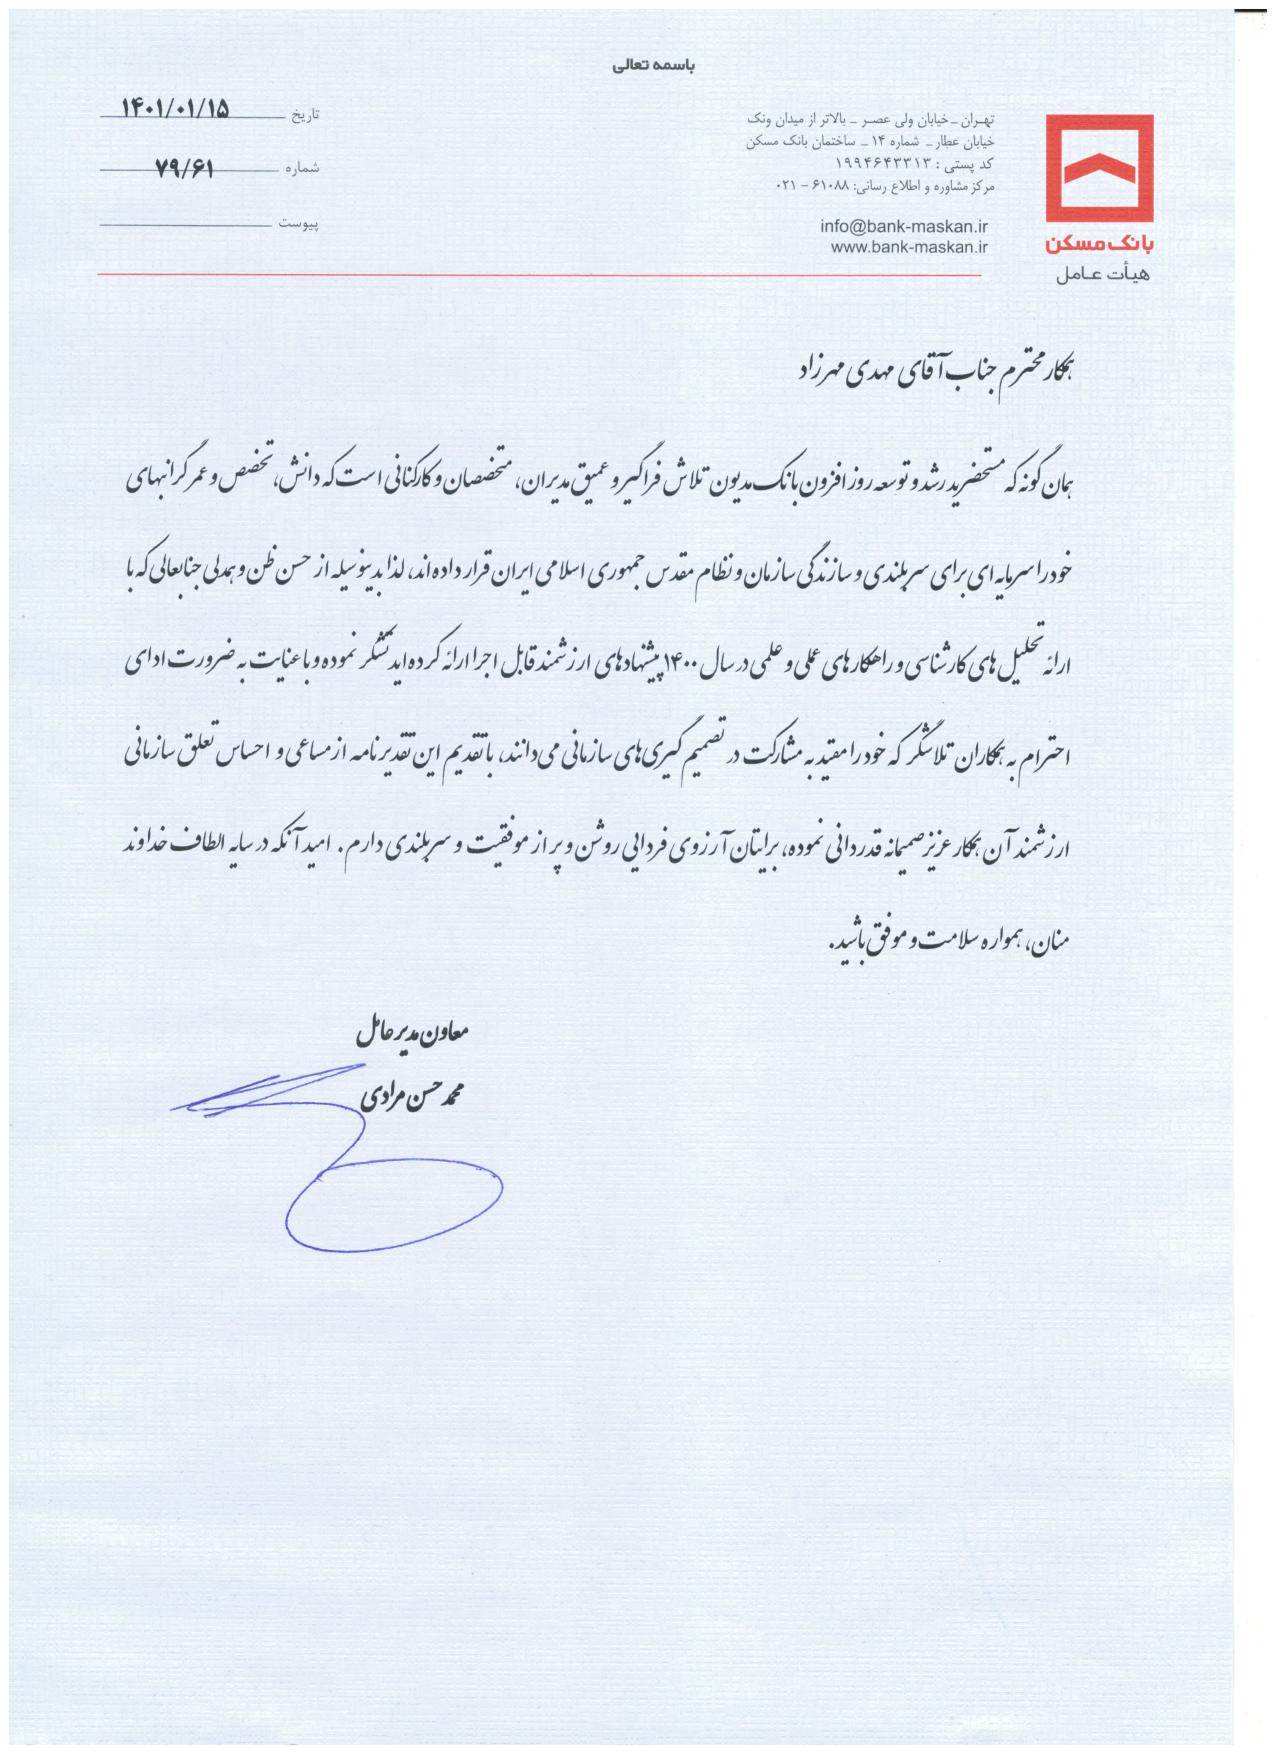 باسمه تعالی
تاریخ ۱۴۰۱/۰۱/۱۵
شماره ۷۹/۶۱
پیوست
تهران - خیابان ولی عصر - بالاتر از میدان ونک
خیابان عطار - شماره ۱۴ - ساختمان بانک مسکن
کد پستی : ۱۹۹۴۶۴۳۳۱۳
مرکز مشاوره و اطلاع رسانی: ۶۱۰۸۸ - ۰۲۱
info@bank-maskan.ir
www.bank-maskan.ir
بانک مسکن
هیأت عامل
همکار محترم جناب آقای مهدی مهرزاد
همان گونه که مستحضرید رشد و توسعه روز افزون بانک مدیون تلاش فراگیر و عمیق مدیران، متخصصان و کارکنانی است که دانش، تخصص و عمر گرانبهای
خود را سرمایه ای برای سربلندی و سازندگی سازمان و نظام مقدس جمهوری اسلامی ایران قرار داده اند، لذا بدینوسیله از حسن ظن و همدلی جنابعالی که با
ارائه تحلیل های کارشناسی و راهکارهای عملی و علمی در سال ۱۴۰۰ پیشنهادهای ارزشمند قابل اجرا ارائه کرده اید تشکر نموده و با عنایت به ضرورت ادای
احترام به همکاران تلاشگر که خود را مقید به مشارکت در تصمیم گیری های سازمانی می دانند، با تقدیم این تقدیرنامه از مساعی و احساس تعلق سازمانی
ارزشمند آن همکار عزیز صمیمانه قدردانی نموده، برایتان آرزوی فردایی روشن و پر از موفقیت و سربلندی دارم. امید آنکه در سایه الطاف خداوند
منان، همواره سلامت و موفق باشید.
معاون مدیرعامل
محمد حسن مرادی